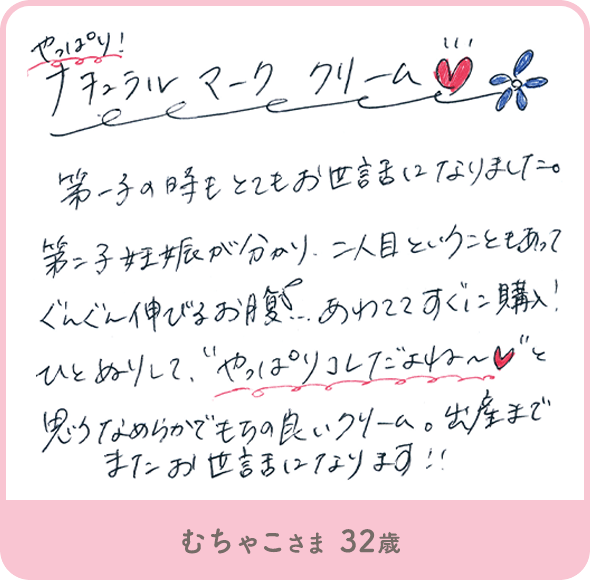 やっぱり!
ナチュラル マーク クリーム
第一子の時もとてもお世話になりました。
第二子妊娠が分かり、二人目ということもあって
ぐんぐん伸びるお腹!…あわててすぐに購入!
ひとぬりして、"やっぱりコレだよね〜"と
思うなめらかでもちの良いクリーム。出産まで
またお世話になります!!
むちゃこさま 32歳